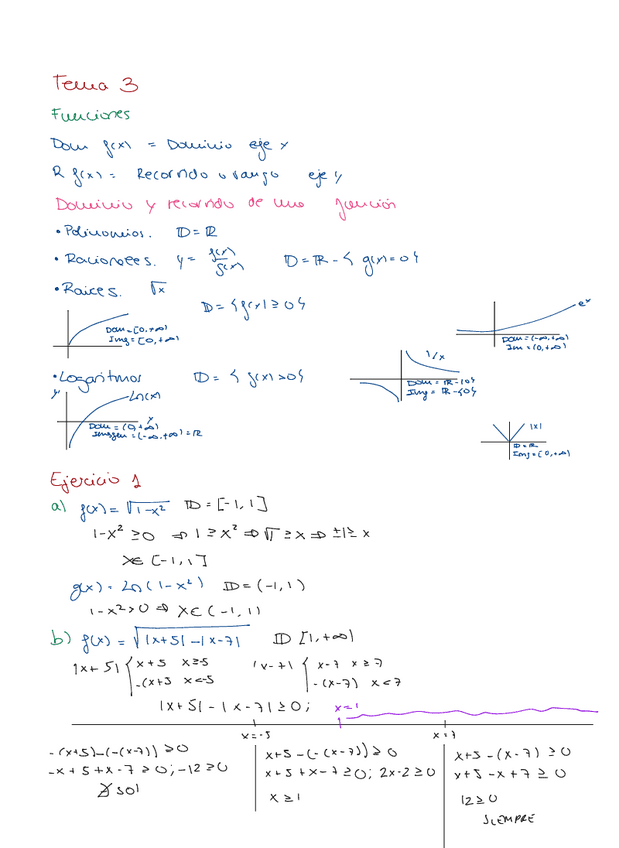 Tema 3
Funciones
Dom f(x) = Dominio eje x
R f(x) = Recorrido o rango eje y
Dominio y recorrido de una función
• Polinomios. D = R
• Racionales. y = f(x)/g(x) D = R - { g(x) = 0 }
• Raíces. √x
D = { f(x) ≥ 0 }
Dom = [0, +∞)
Img = [0, +∞)
e^x
Dom = (-∞, +∞)
Im = (0, +∞)
1/x
Dom = R - {0}
Img = R - {0}
• Logaritmos D = { f(x) > 0 }
y
Ln(x)
x
Dom = (0, +∞)
Imagen = (-∞, +∞) = R
|x|
D = R
Img = [0, +∞)
Ejercicio 1
a) f(x) = √1-x² D = [-1, 1]
1-x² ≥ 0 ⇒ 1 ≥ x² ⇒ √1 ≥ x ⇒ ±1 ≥ x
x ∈ [-1, 1]
g(x) = Ln(1-x²) D = (-1, 1)
1-x² > 0 ⇒ x ∈ (-1, 1)
b) f(x) = √|x+5| - |x-7| D [1, +∞)
|x+5| { x+5 x≥-5 |x-7| { x-7 x≥7
-(x+5 x<-5 -(x-7) x<7
|x+5| - |x-7| ≥ 0; x=1
x=-5 x=7
-(x+5)-(-(x-7)) ≥ 0
-x+5+x-7 ≥ 0; -12 ≥ 0
∄ sol
x+5-(-(x-7)) ≥ 0
x+5+x-7 ≥ 0; 2x-2 ≥ 0
x ≥ 1
x+5-(x-7) ≥ 0
x+5-x+7 ≥ 0
12 ≥ 0
SIEMPRE